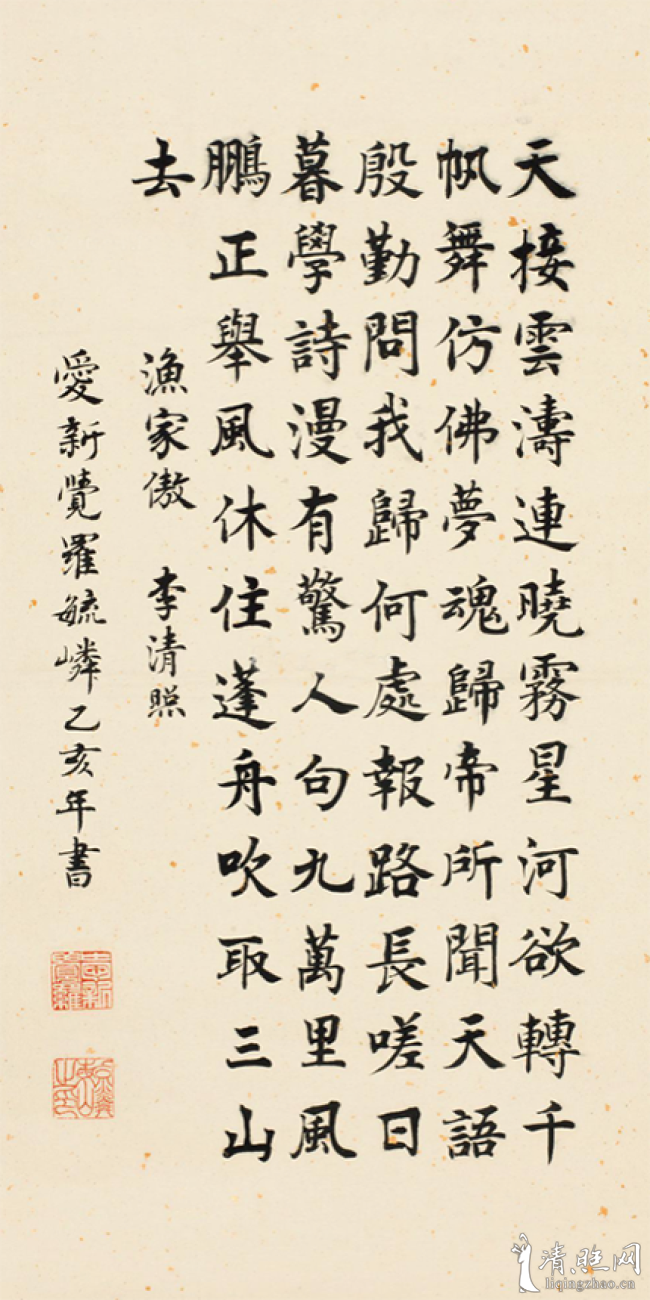 天接雲濤連曉霧星河欲轉千
帆舞仿佛夢魂歸帝所聞天語
殷勤問我歸何處報路長嗟日
暮學詩漫有驚人句九萬里風
鵬正舉風休住蓬舟吹取三山
去
漁家傲 李清照
愛新覺羅毓嶙乙亥年書
愛新覺羅
清照网
liqingzhao.cn